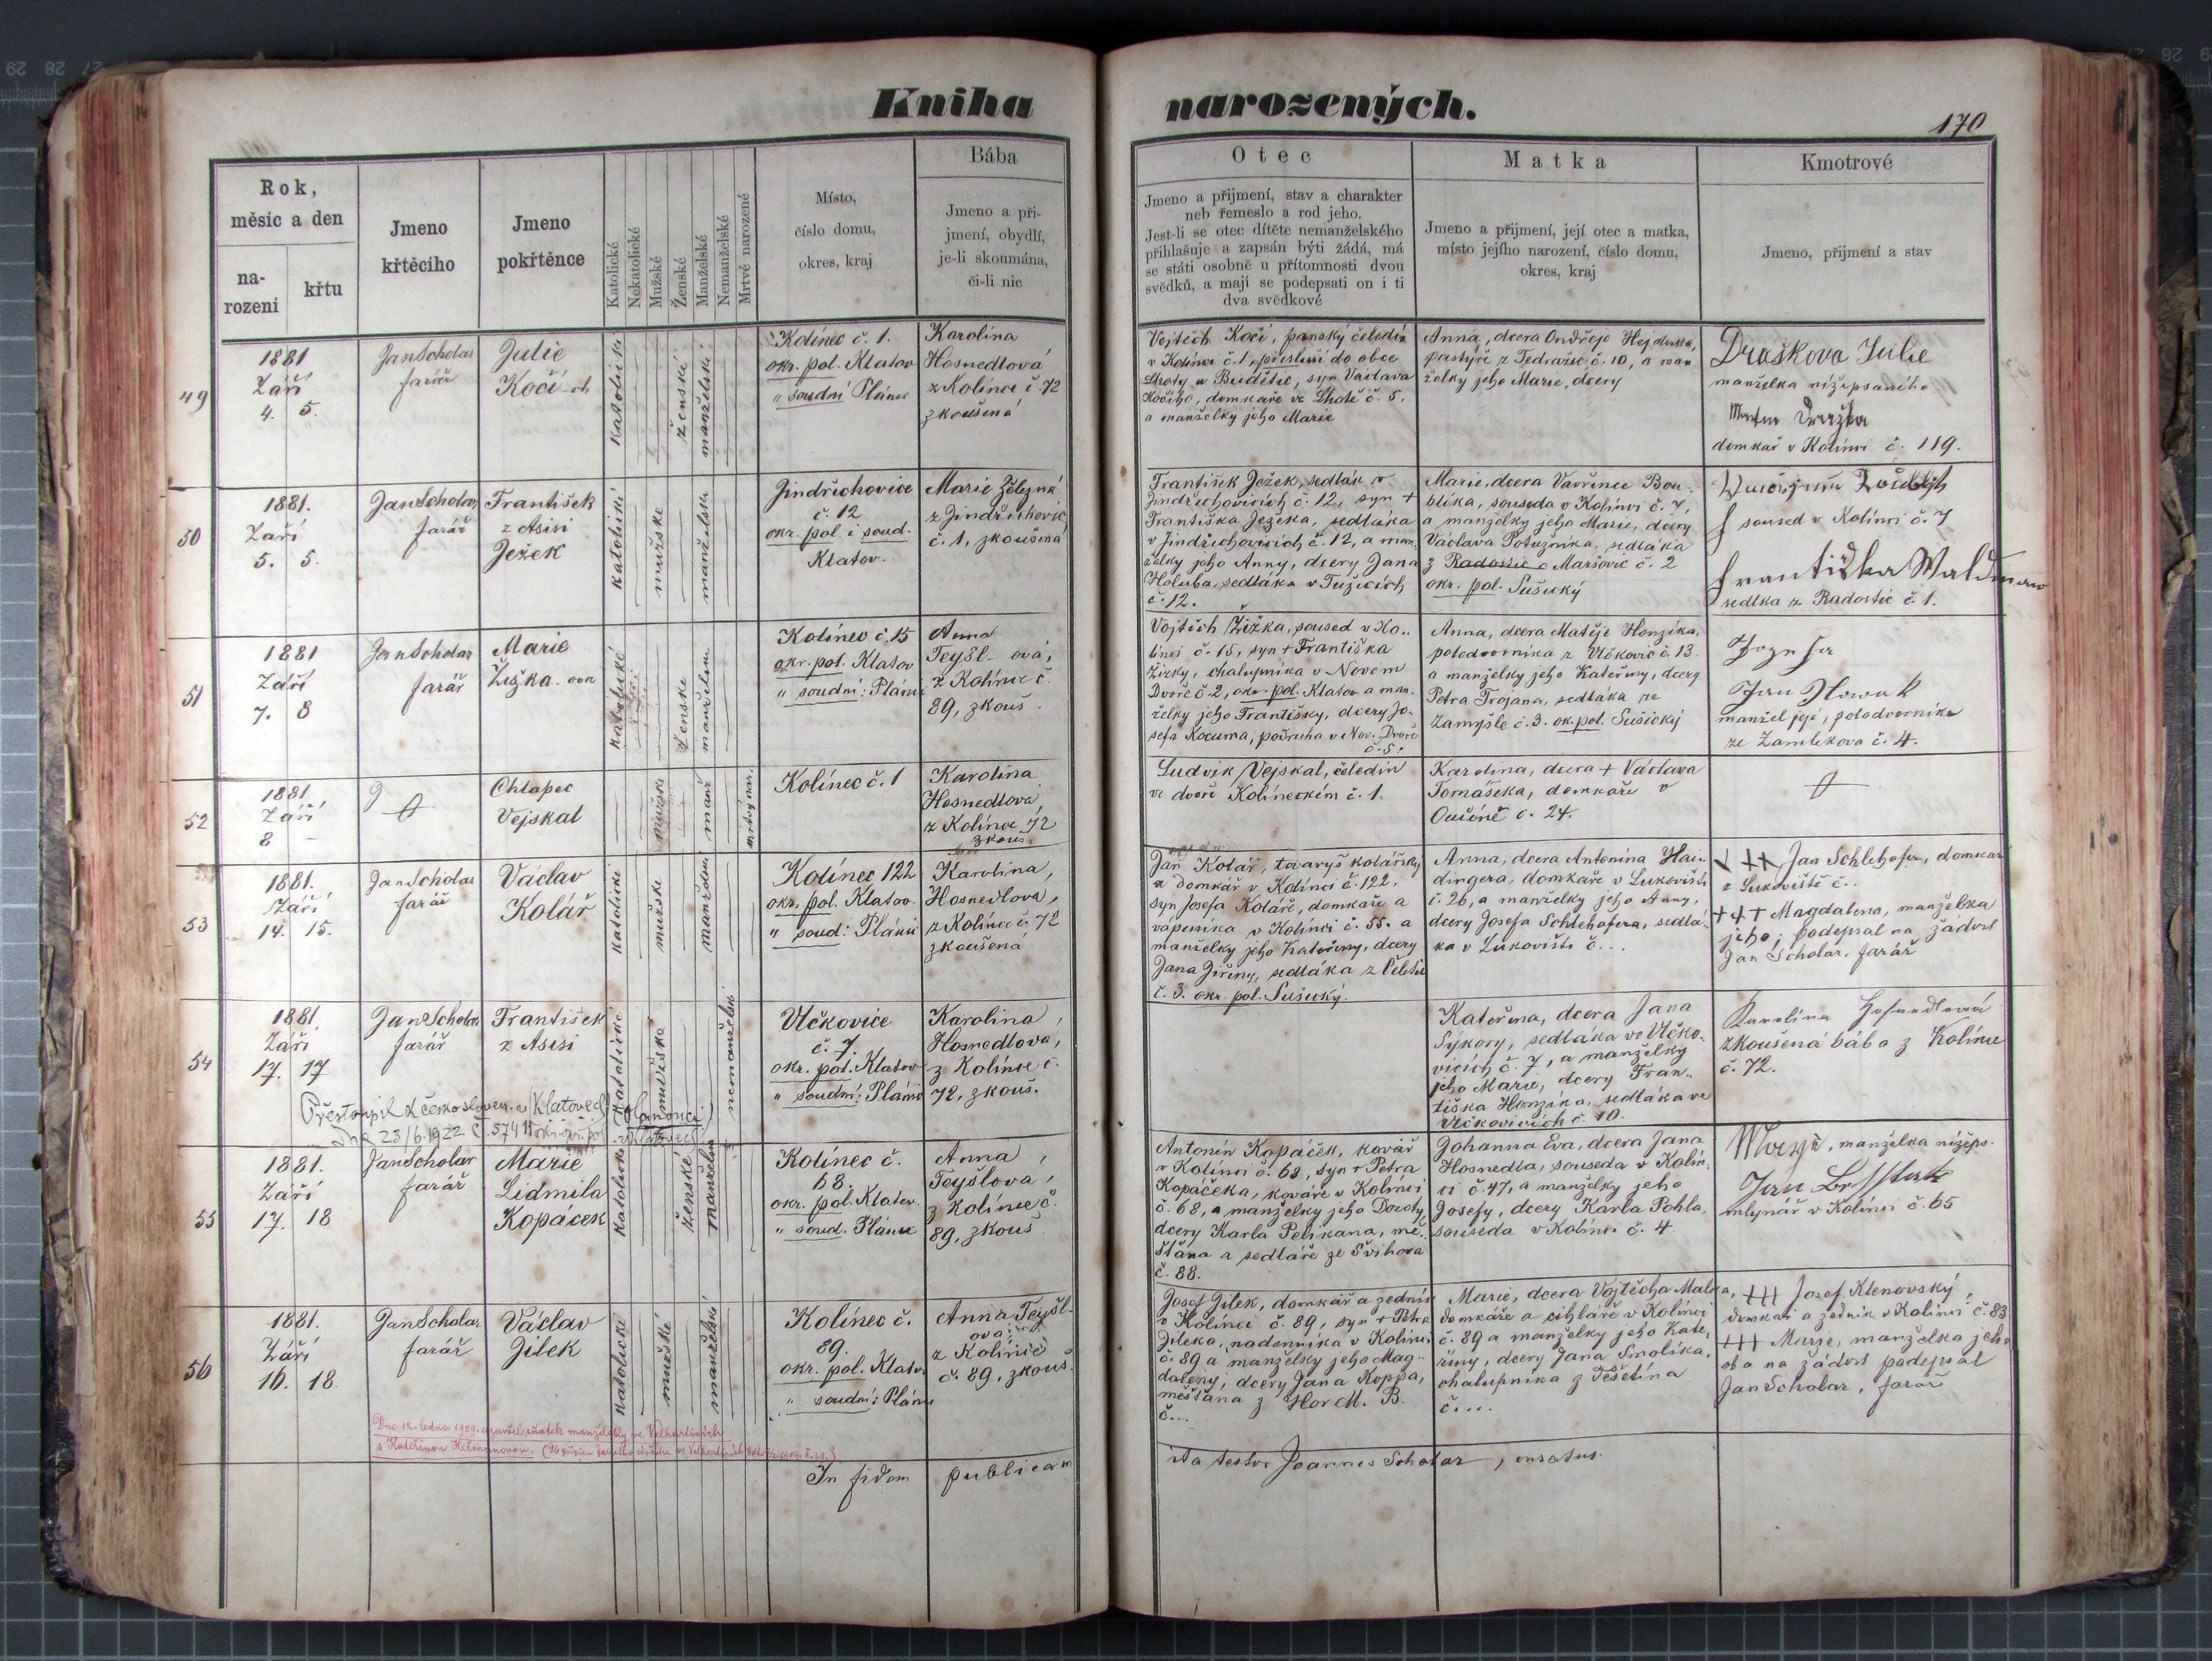 Kniha narozených.
170
Rok,
měsic a den
na-
rozeni
křtu
Jmeno
křtěcího
Jmeno
pokřtěnce
Katolické
Nekatolické
Mužské
Ženské
Manželské
Nemanželské
Mrtvé narozené
Místo,
číslo domu,
okres, kraj
Bába
Jmeno a při-
jmení, obydlí,
je-li skoumána,
či-li nic
Otec
Jmeno a přijmení, stav a charakter
neb řemeslo a rod jeho.
Jest-li se otec dítěte nemanželského
přihlašuje a zapsán býti žádá, má
se státi osobně u přítomnosti dvou
svědků, a mají se podepsati on i ti
dva svědkové
Matka
Jmeno a přijmení, její otec a matka,
místo jejího narození, číslo domu,
okres, kraj
Kmotrové
Jmeno, přijmení a stav
49
1881
Září
4. 5.
Jan Scholar
farář
Julie
Kočí
katolické
ženské
manželské
Kolínec č. 1.
okr. pol. Klatov
" soudní Plánice
Karolina
Hosnedlová
z Kolínce č. 72
zkoušená
Vojtěch Kočí, panský čeledín
v Kolínci č. 1, přísluší do obce
Lhoty u Budětic, syn Václava
Kočího, domkaře ve Lhotě č. 5.
a manželky jeho Marie
Anna, dcera Ondřeje Hejduka,
pastýře z Tedražic č. 10, a man
želky jeho Marie, dcery
Draškova Julie
manželka nížepsaného
domkař v Kolínci č. 119.
50
1881.
Září
5. 5.
Jan Scholar
farář
František
z Asisi
Ježek
katolické
mužské
manželské
Jindřichovice
č. 12
okr. pol. i soud.
Klatov.
Marie Železná
z Jindřichovic
č. 1, zkoušená
František Ježek, sedlák v
Jindřichovicích č. 12, syn +
Františka Ježeka, sedláka
v Jindřichovicích č. 12, a man.
želky jeho Anny, dcery Jana
Holuba, sedláka v Tužicích
č. 12.
Marie, dcera Vavřince Bou-
blíka, souseda v Kolínci č. 7,
a manželky jeho Marie, dcery
Václava Potužníka, sedláka
z Maršovic č. 2
okr. pol. Sušický
soused v Kolínci č. 7
Františka Waldman
sedlka z Radostic č. 1.
51
1881
Září
7. 8
Jan Scholar
farář
Marie
Žižka. ova
katolické
ženské
manželské
Kolínec č. 15
okr. pol. Klatov
" soudní: Plánice
Anna
Teyšl- ová,
z Kolínce č.
89, zkouš.
Vojtěch Žižka, soused v Ko..
línci č. 15, syn + Františka
Žižky, chalupníka v Novém
Dvoře č. 2, okr. pol. Klatov a man.
želky jeho Františky, dcery Jo-
sefa Kocuma, podruha v Nov. Dvoře
č. 5.
Anna, dcera Matěje Honzíka,
polodvorníka z Vlčkovic č. 13
a manželky jeho Kateřiny, dcery
Petra Trojana, sedláka ze
Zamyšle č. 3. ok. pol. Sušický
Jan Nowak
manžel její, polodvorníka
ze Zamlekova č. 4.
52
1881
Září
8 –
Chlapec
Vejskal
mužské
manž
mrtvý nar.
Kolínec č. 1
Karolina
Hosnedlová,
z Kolínce 72
zkouš.
Ludvík Vejskal, čeledín
ve dvoře Kolíneckém č. 1.
Karolina, dcera + Václava
Tomášeka, domkaře v
Oučíně č. 24.
53
1881.
Září
14. 15.
Jan Scholar
farář
Václav
Kolář
katolické
mužské
manželské
Kolínec 122
okr. pol. Klatov.
" soud: Plánice
Karolina,
Hosnedlova,
z Kolínce č. 72
zkoušena
Jan Kolář, tovaryš kolářský
a domkář v Kolínci č. 122,
syn Josefa Koláře, domkaře a
vápeníka v Kolínci č. 55. a
manželky jeho Kateřiny, dcery
Jana Jiřiny, sedláka z Čeletic
č. 3. okr. pol. Sušický.
Anna, dcera Antonína Hai-
dingera, domkaře v Lukovišti
č. 26, a manželky jeho Anny,
dcery Josefa Schlehofera, sedlá-
ka v Lukovišti č...
+++ Jan Schlehofer, domkař
z Lukoviště č..
+++ Magdalena, manželka
jeho; podepsal na žádost
Jan Scholar, farář
54
1881
Září
17. 17
Jan Scholar
farář
František
z Asisi
katolické
mužské
nemanželské
Vlčkovice
č. 7.
okr. pol. Klatov
" soudní: Plánice
Karolina,
Hosnedlova,
z Kolínce č.
72, zkouš.
Kateřina, dcera Jana
Sýkory, sedláka ve Vlčko-
vicích č. 7, a manželky
jeho Marie, dcery Fran-
tiška Honzíka, sedláka ve
Vlčkovicích č. 10.
Karolina Hosnedlová
zkoušená bába z Kolínce
č. 72.
Přestoupil k českosloven. v Klatovech
dne 23/6. 1922
55
1881.
Září
17. 18
Jan Scholar
farář
Marie
Lidmila
Kopáček
katolické
ženské
manželské
Kolínec č.
68.
okr. pol. Klatov.
" soud. Plánice
Anna,
Teyšlova,
z Kolínce č.
89, zkouš
Antonín Kopáček, kovář
v Kolínci č. 68, syn + Petra
Kopáčeka, kováře v Kolínci
č. 68, a manželky jeho Doroty,
dcery Karla Pelikana, mě-
šťana a sedláře ze Švihova
č. 88.
Johanna Eva, dcera Jana
Hosnedla, souseda v Kolín-
ci č. 47, a manželky jeho
Josefy, dcery Karla Pohla,
souseda v Kolínci č. 4
manželka nížeps.
mlynář v Kolínci č. 65
56
1881.
Září
16. 18.
Jan Scholar
farář
Václav
Jílek
katolické
mužské
manželské
Kolínec č.
89.
okr. pol. Klatov
" soudní: Plánice
Anna Teyšl-
ova,
z Kolínce
č. 89, zkouš.
Josef Jílek, domkář a zedník
v Kolínci č. 89, syn + Petra
Jíleka, nadenníka v Kolínci
č. 89 a manželky jeho Mag-
daleny, dcery Jana Koppa,
měšťana z Hor M. B.
č...
Marie, dcera Vojtěcha Malka,
domkáře a cihláře v Kolínci
č. 89 a manželky jeho Kate-
řiny, dcery Jana Smolíka,
chalupníka z Těšetína
č...
+++ Josef Klenovský,
domkař a zedník v Kolínci č. 83
+++ Marie, manželka jeho
oba na žádost podepsal
Jan Scholar, farář
Dne 12. ledna 1909. uzavřel sňatek manželský ve Velharticích
s Kateřinou Heřmanovou.
In fidem publicam
ita testor Joannes Scholar, curatus.